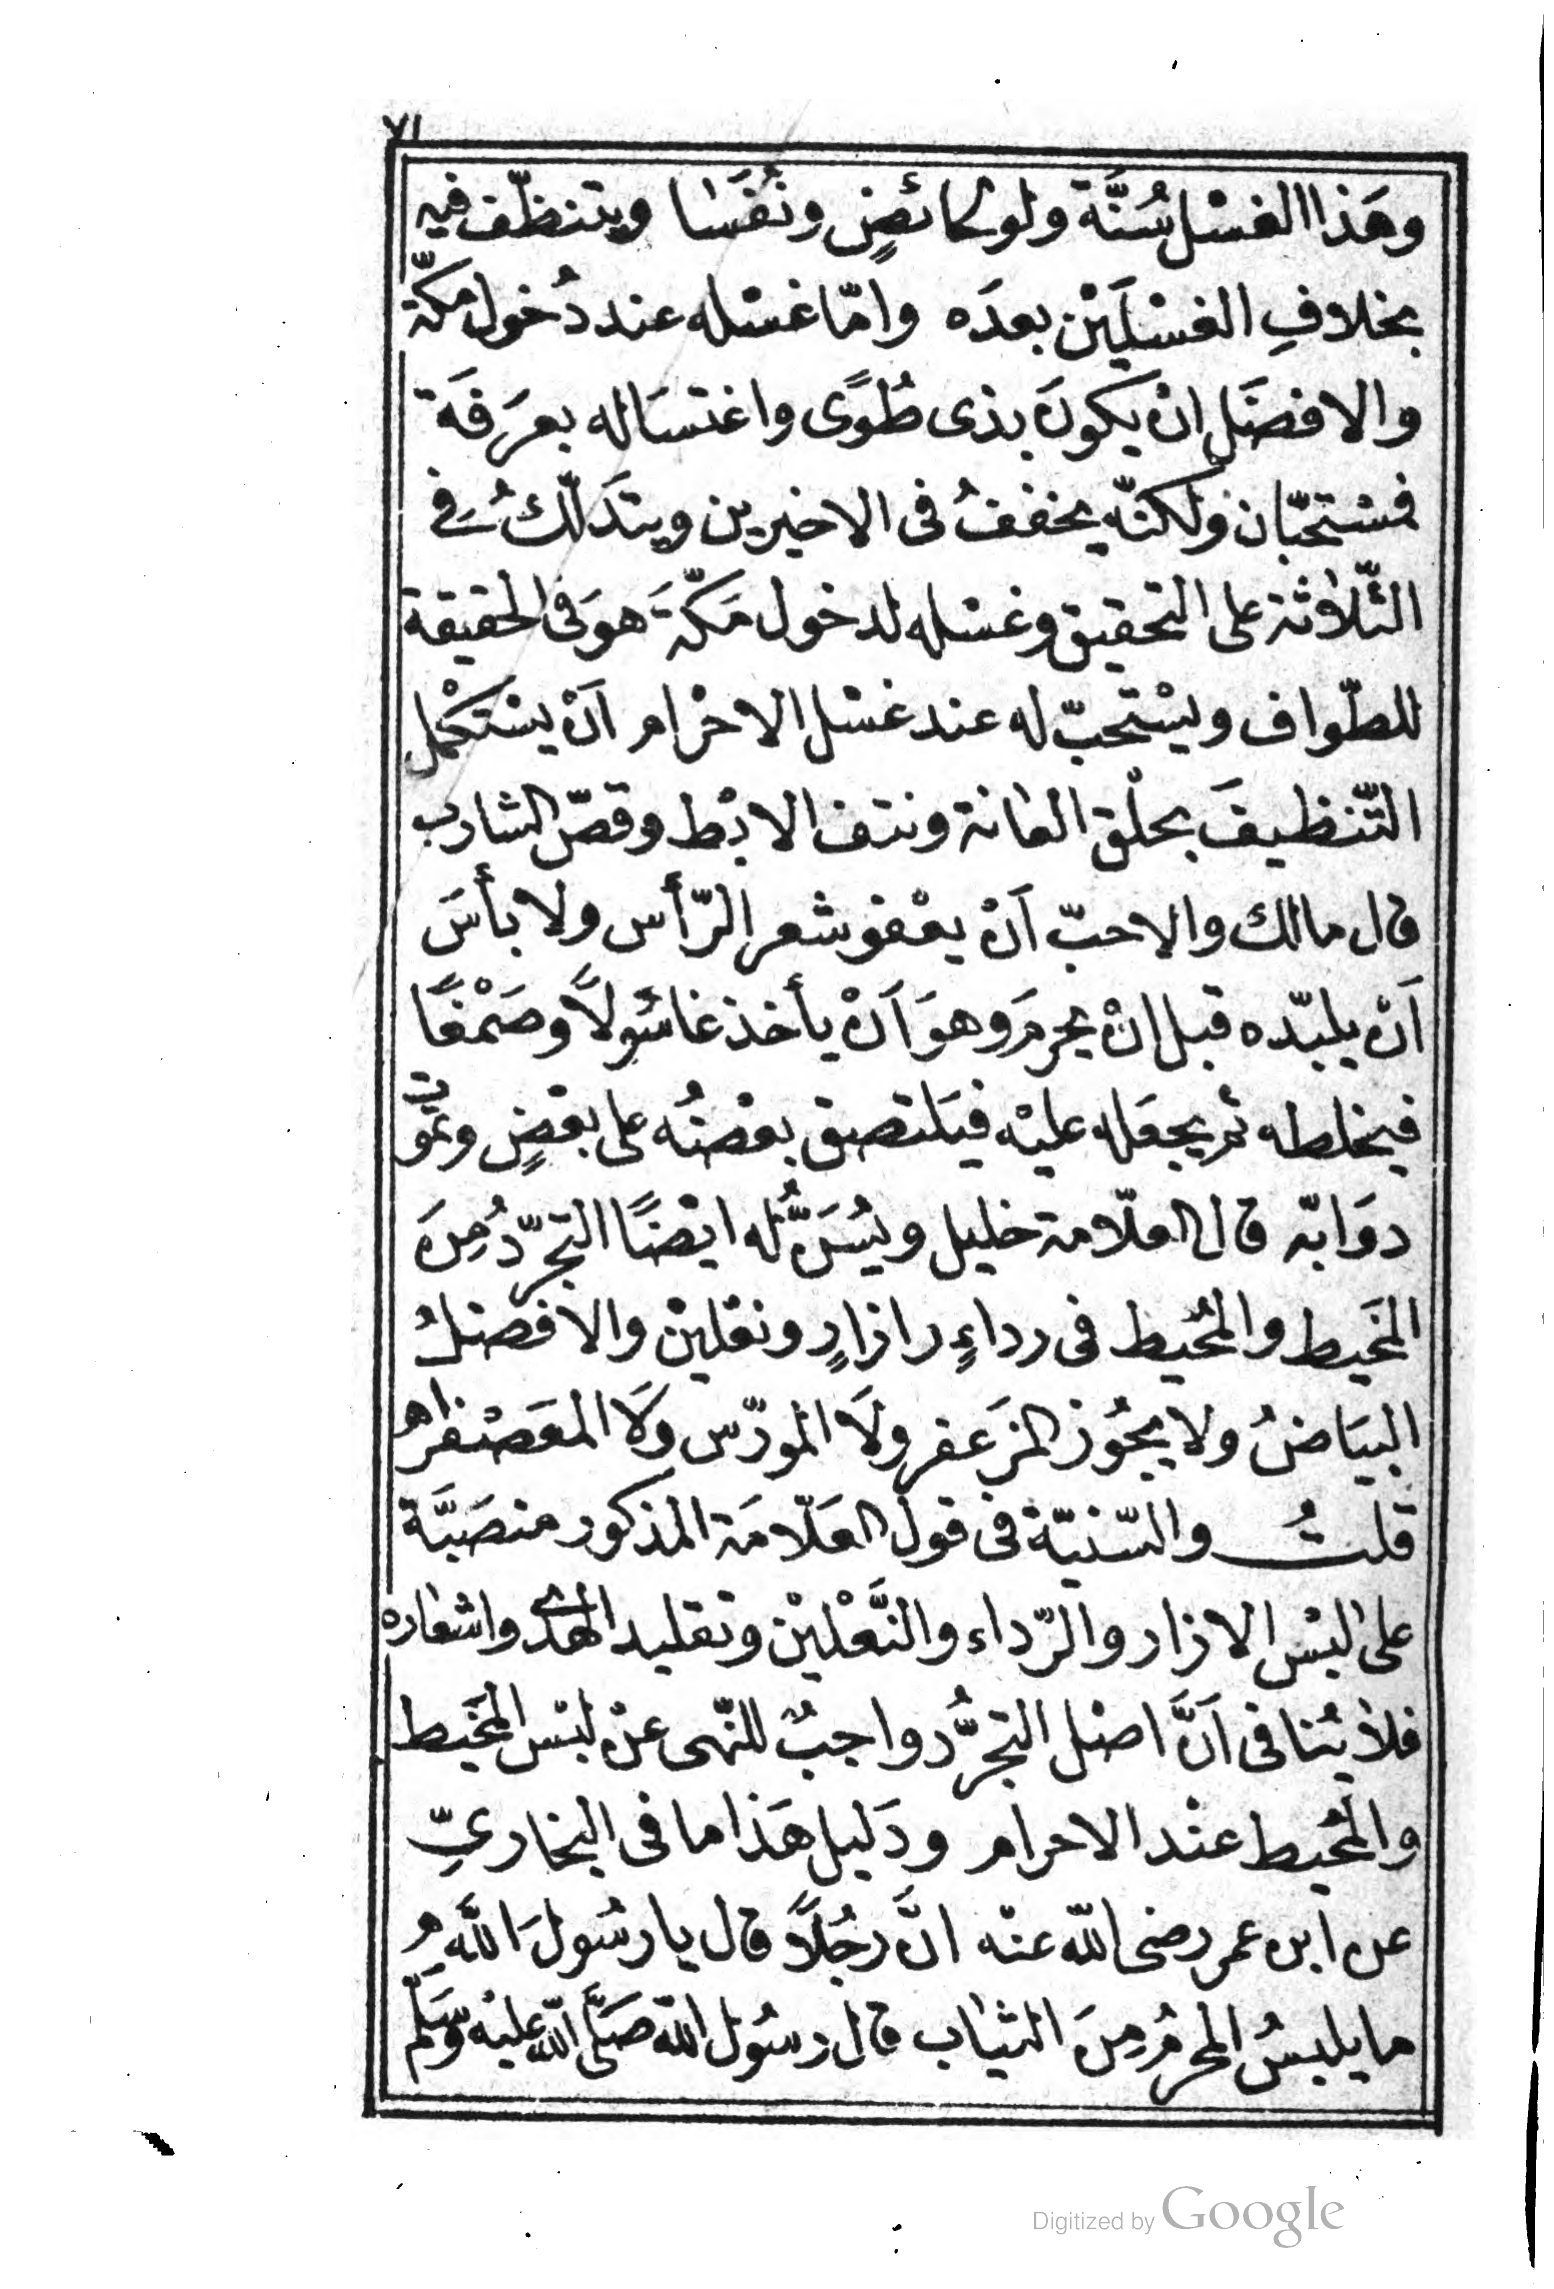 ٧١
وهَذا الغسْل سُنَّة ولو لحائضٍ ونُفَسَا ويتنظّف فيه
بخلافِ الغسْلَيْن بعدَه وامّا غسْله عند دُخول مكّة
والافضَل انْ يكونَ بذى طُوًى واغتسَاله بعرَفَة
فستحبّان ولكنّه يخففُ فى الاخيرين ويتدَلّكُ فِى
الثّلاثة على التحقيق وغسْله لدخول مَكّةَ هوَ فى الحقيقة
للطّواف ويسْتحبّ له عند غسْل الاحْرام اَنْ يسْتكْمل
التّنظيفَ بحلْق العانة ونتف الابْط وقصّ الشارب
قال مالك والاحبّ اَنْ يعْفو شعر الرّأس ولا بأسَ
اَنْ يلبّده قبل انْ يحرمَ وهوَ اَنْ يأخذ غاسُولاً وصَمْغًا
فيخلطه ثم يجعَله عليْه فيَلتصق بعْضُه على بعْضٍ وتمُوت
دوَابّه قال العلّامة خليل ويُسَنُّ له ايْضًا التجرّدُ مِنَ
المَخيط والمُحيط فى رداءٍ رازارٍ ونعْليْن والافضلُ
البيَاضُ ولا يجُوز المزَعفر ولَا المورّس ولَا المعَصْفر اهـ
قلتُ والسّنيّة فى قول العَلّامَة المذكور منصَبَّة
على لبْس الازار والرّداء والنَّعْليْن وتقليد الهدى واشعاره
فلا يُنافى اَنَّ اصْل التجرُّد واجبٌ للنّهى عنْ لبْس المَخيط
والمُحيط عنْد الاحرام ودَليل هَذا ما فى البخارىِّ
عن ابن عمر رضى اللّه عنْه انَّ رجُلاً قال يا رسُولَ اللَّهِ
ما يلبسُ المحرمُ مِنَ الثياب قال رسُول اللّه صَلَّى اللّه عليْه وَسَلّم
Digitized by Google